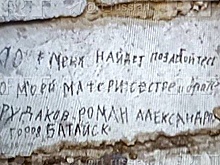 меня найдет позаботьтесь
о моей матери сестре и брате
Рудаков Роман Александр
город Батайск